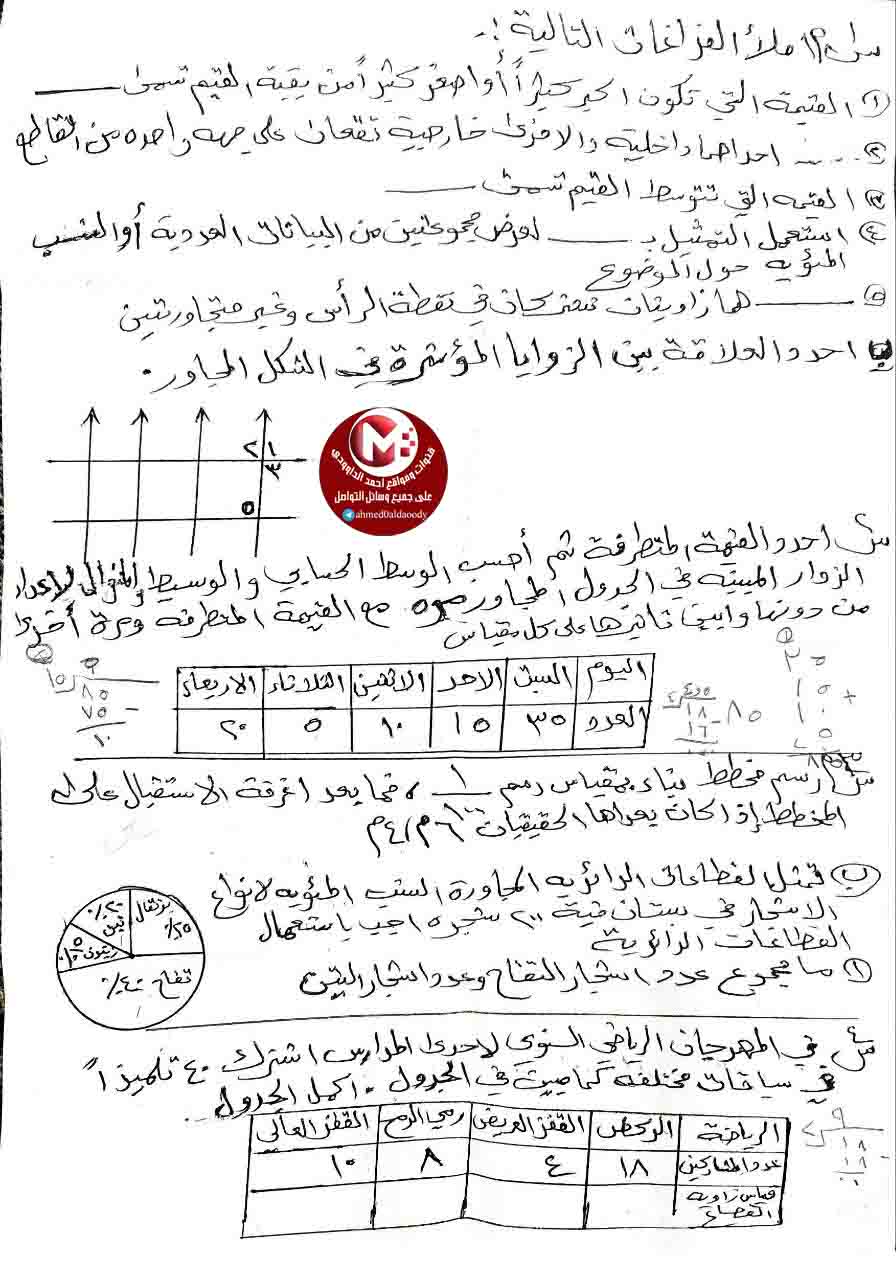 س١/ املأ الفراغات التالية :-
① القيمة التي تكون اكبر كثيراً أو اصغر كثيراً من بقية القيم تسمى ــــــ
② ..... احداهما داخلية والاخرى خارجية تقعان على جهه واحده من القاطع
③ القيمه التي تتوسط القيم تسمى ــــــ
④ استعمل التمثيل بـ ــــــ لعرض مجموعتين من البيانات العددية أو النسب
المئويه حول الموضوع
⑤ ــــــ هما زاويتان تشتركان في نقطة الرأس وغير متجاورتين
ب احدد العلاقة بين الزوايا المؤشرة في الشكل المجاور .
٢ ١
٣
٥
قنوات ومواقع احمد الداوودي
على جميع وسائل التواصل
@ahmed0aldaoody
س٢ احدد القيمة المتطرفة ثم أحسب الوسط الحسابي والوسيط والمنوال لاعداد
الزوار المبينه في الجدول المجاور مره مع القيمة المتطرفه ومرة أخرى
من دونها وابين تاثيرها على كل مقياس
اليوم السبت الاحد الاثنين الثلاثاء الاربعاء
العدد ٣٥ ١٥ ١٠ ٥ ٢٠
س٣ رسم مخطط بناء بمقياس رسم ١/١٠٠ ، فما بعد اغرفة الاستقبال على
المخطط إذا كان بعداها الحقيقيان ٦م ، ٤م
ب تمثل القطاعات الدائريه المجاورة النسب المئويه لانواع
الاشجار في بستان فيه ٢٠٠ شجره اجب باستعمال
القطاعات الدائرية
① ما مجموع عدد اشجار التفاح وعدد اشجار التين
برتقال
٢٠٪ تين
زيتون
تفاح ٤٠٪
س٤ في المهرجان الرياضي السنوي لاحدى المدارس اشترك ٤٠ تلميذاً
في سباقات مختلفه كما مبين في الجدول . اكمل الجدول
الرياضة الركض القفز العريض رمي الرمح القفز العالي
عدد المشاركين ١٨ ٤ ٨ ١٠
قياس زاويه القطاع